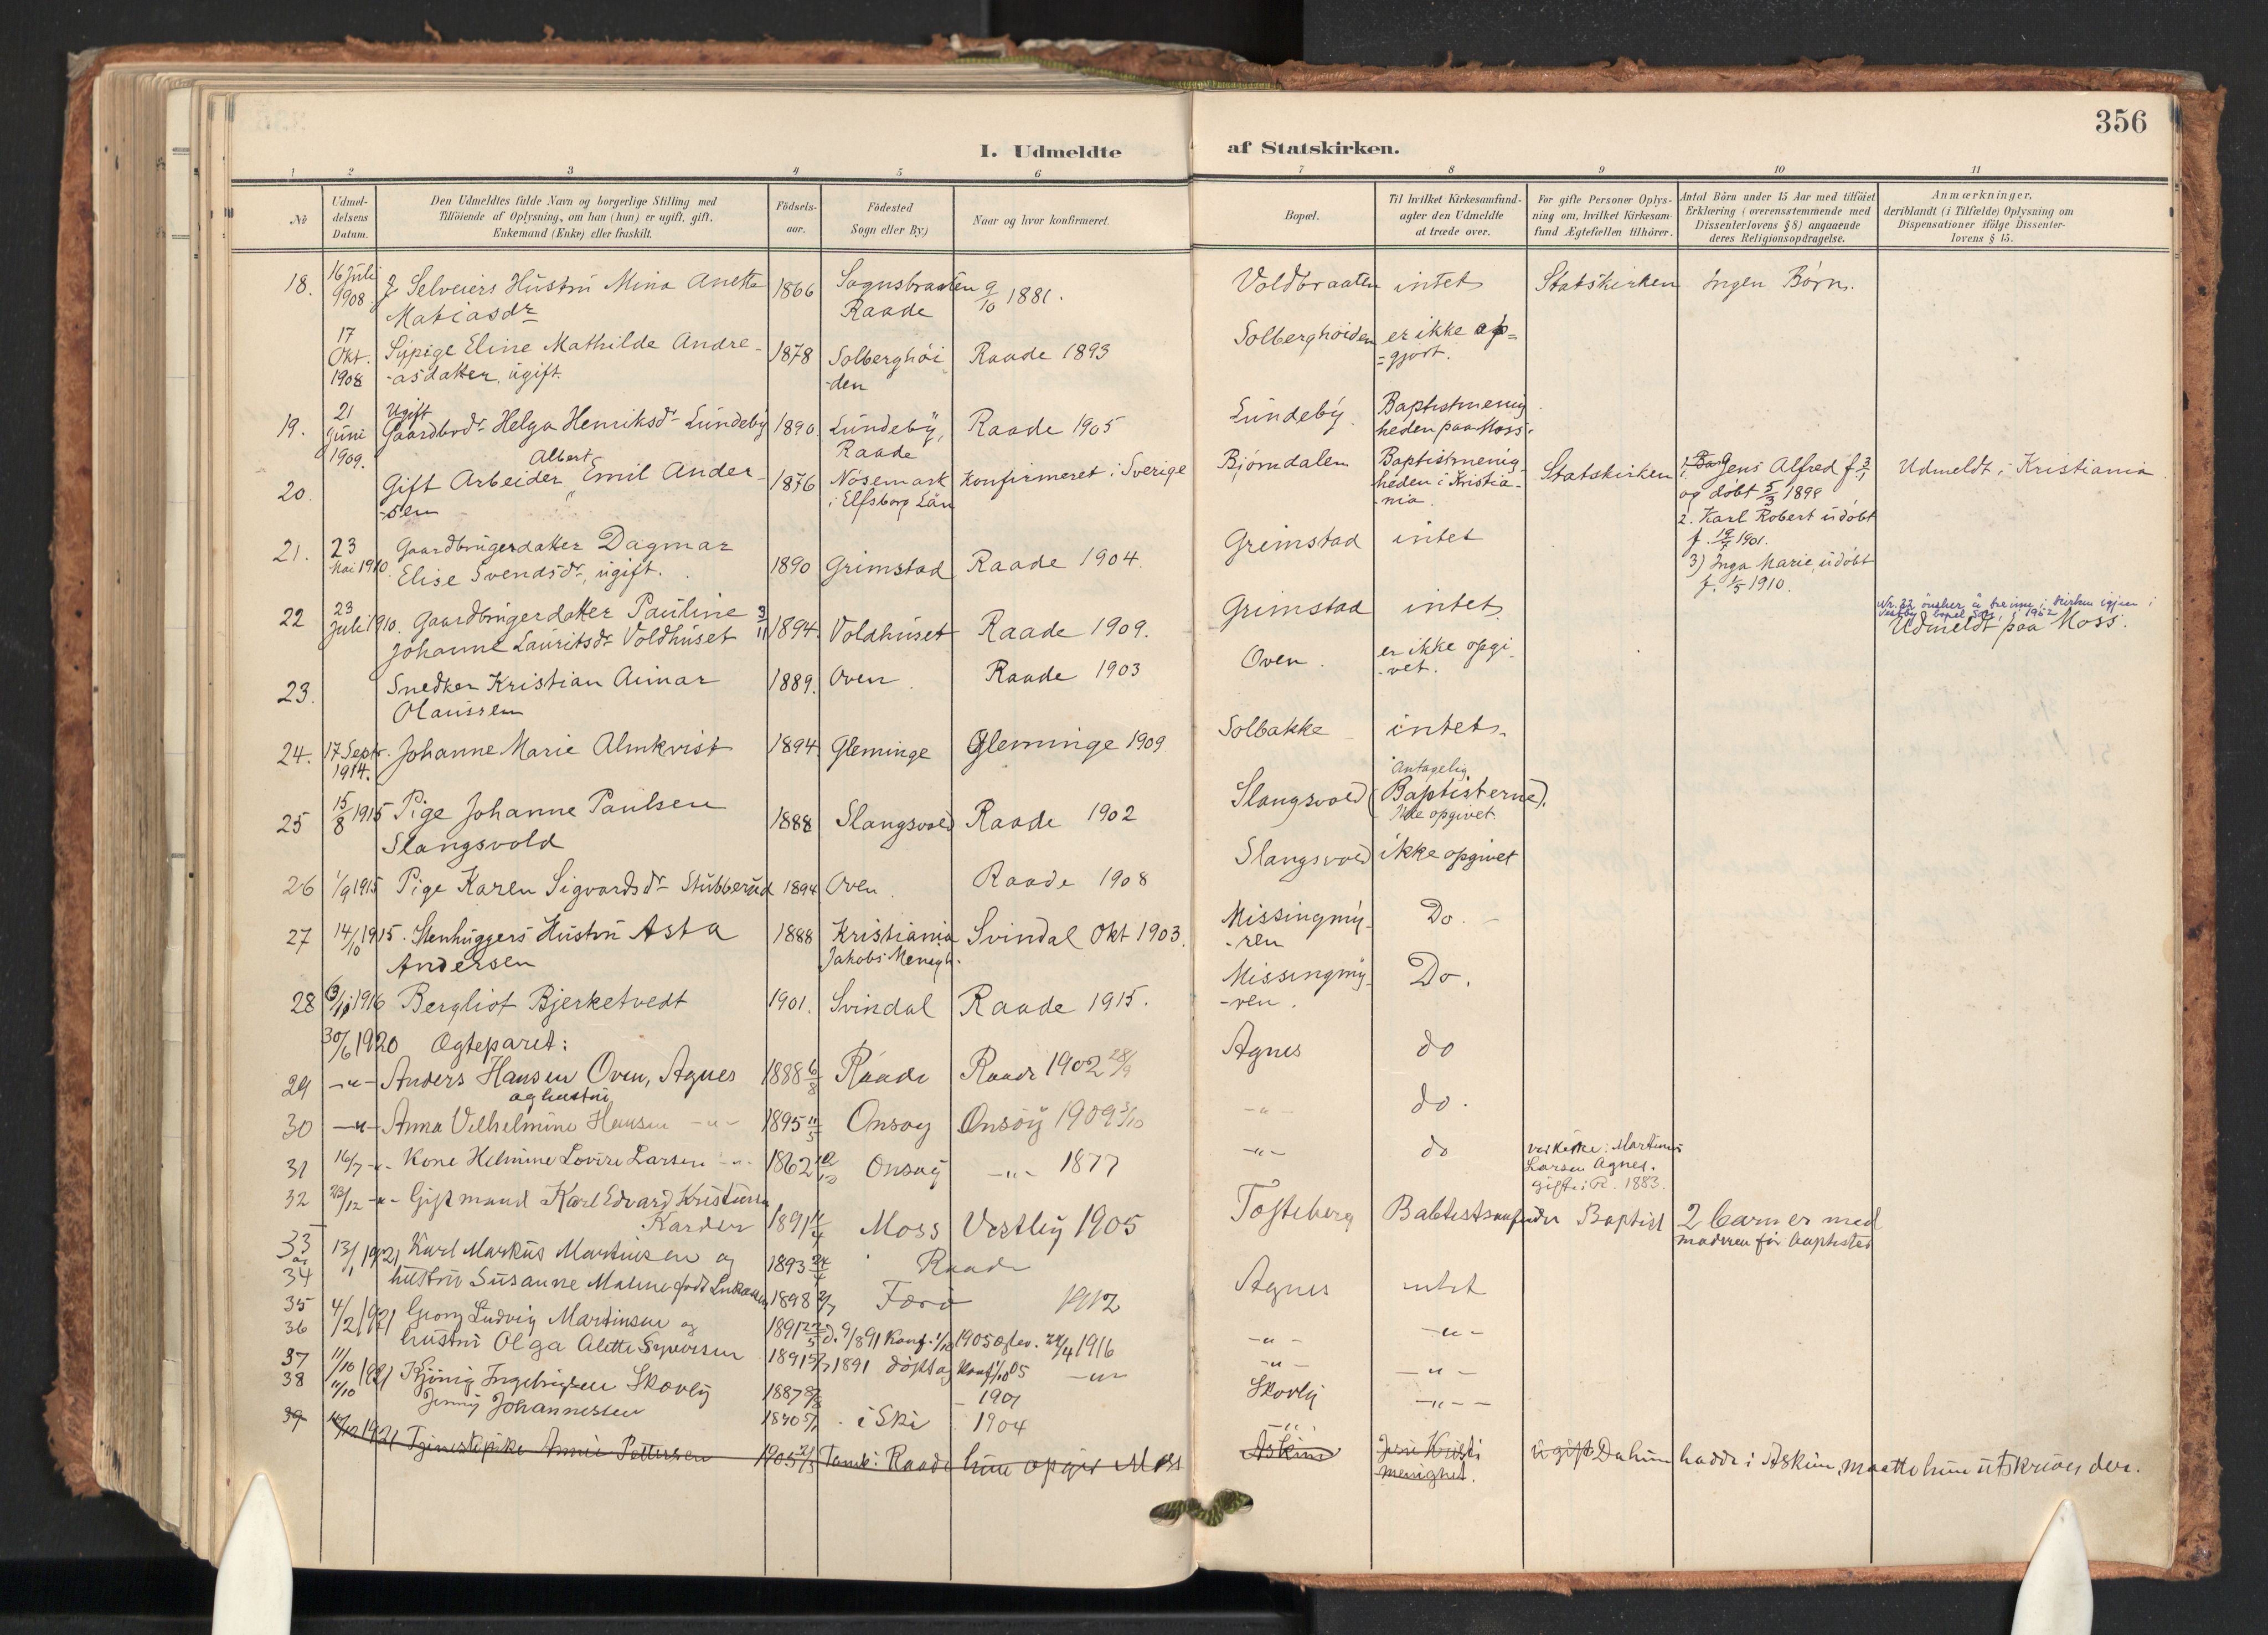 356
I. Udmeldte af Statskirken.
1 2 3 4 5 6 7 8 9 10 11
No
Udmeldelsens Datum.
Den Udmeldtes fulde Navn og borgerlige Stilling med
Tilføiende af Oplysning, om han (hun) er ugift, gift,
Enkemand (Enke) eller fraskilt.
Fødsels-
aar.
Fødested
Sogn eller By)
Naar og hvor konfirmeret.
Bopæl.
Til hvilket Kirkesamfund
agter den Udmeldte
at træde over.
For gifte Personer Oplys-
ning om, hvilket Kirkesam-
fund Ægtefællen tilhører.
Antal Børn under 15 Aar med tilføiet
Erklæring (overensstemmende med
Dissenterlovens § 8) angaaende
deres Religionsopdragelse.
Anmærkninger,
deriblandt (i Tilfælde) Oplysning om
Dispensationer ifølge Dissenter-
lovens § 15.
18. 16 Juli 1908 Selveiers Hustru Mina Anetta 1866 Sognsbraaten 9/10 1881. Voldbraaten intet Statskirken Ingen Børn.
Matiasdr Raade
17 Okt. 1908 Sypige Eline Mathilde Andre- 1878 Solberghöi Raade 1893 Solberghöiden er ikke op=
-asdatter, ugift. -den =gjort.
19. 21 Juni 1909. Ugift
Gaardbrdr Helga Henriksdr Lundeby 1890 Lundeby, Raade 1905 Lundeby Baptistmenig
Raade heden paa Moss.
20. Gift Arbeider Albert Emil Ander- 1876 Nösemark Konfirmeret i Sverige Björndalen Baptistmenig- Statskirken Jens Alfred f. 3/1 Udmeldt i Kristiania
-sen i Elfsborg Län heden i Kristia- og döbt 5/3 1899
-nia. 2. Karl Robert udöbt
f. 19/7 1901.
3) Inga Marie, udöbt
f. 1/5 1910.
21. 23 Mai 1910 Gaardbrugerdatter Dagmar
Elise Svendsdr, ugift. 1890 Grimstad Raade 1904. Grimstad intet
22 23 Juli 1910. Gaardbrugerdatter Pauline 3/11
Johanne Lauritsdr Voldhuset 1894 Voldhuset Raade 1909. Grimstad intet
Nr. 22 önsker å tre inn i kirken igjen i
Udmeldt paa Moss.
23. Snedker Kristian Aimar 1889. Oven Raade 1903 Oven er ikke opgi-
Olaussen -vet.
24. 17 Septr. 1914. Johanne Marie Almkvist 1894 Gleminge Gleminge 1909 Solbakke intet
25 15/8 1915 Pige Johanne Paulsen 1888 Slangsvold Raade 1902 Slangsvold Antagelig
Slangsvold (Baptisterne).
Ikke opgivet.
26 1/9 1915 Pige Karen Sigvardsdr Stubberud 1894 Oven Raade 1908 Slangsvold ikke opgivet
27 14/10 1915. Stenhuggers Hustru Asta 1888 Kristiania Svindal Okt 1903. Missingmy- Do.
Andersen Jakobs Menigh. -ren
28 1916 Bergliot Bjerketvedt 1901. Svindal Raade 1915. Missingmy- Do.
-ren.
30/6 1920 Ægteparet:
29 -"- Anders Hansen Oven, Agnes 1888 6/8 Raade Raade 1902 28/9 Agnes do
og hustru
30 -"- Anna Vilhelmine Hansen -"- 1895 11/5 Onsøy Onsøy 1909 3/10 -"- do.
31 16/7 -"- Kone Helmine Lovise Larsen -"- 1862 Onsøy -"- 1877 -"- do Martinus
Larsen Agnes.
gift i R. 1883.
32 23/12 -"- Gift mand Karl Edvard Kristiansen
Karder 1891 Moss Vestby 1905 Tofteberg Babtistsamfundet Baptist 2 barn er med
moderen for baptister
33 13/1 1921 Karl Markus Martinsen og 1893 Raade
og
34 hustru Susanne Maline født 1898 1912 Agnes intet
35 4/2 1921 Georg Ludvig Martinsen og 1891 Konf. 1905 24/4 1916 -"- -"-
36 hustru Olga Alette Syversen 1891 1891 døpt og Konf 05 -"-
37 11/10 1921 Ingebrigtsen Skovly 1887 1901 Skovly -"-
38 11/10 Jenny Johannessen i Ski 1904 -"-
39 1921 Tjenestepike Annie Pettersen 1905 Raade hun opgir Moss Askim Jesu Kristi ugift Da hun hadde i Askim, maatte hun utskrives der.
menighet.